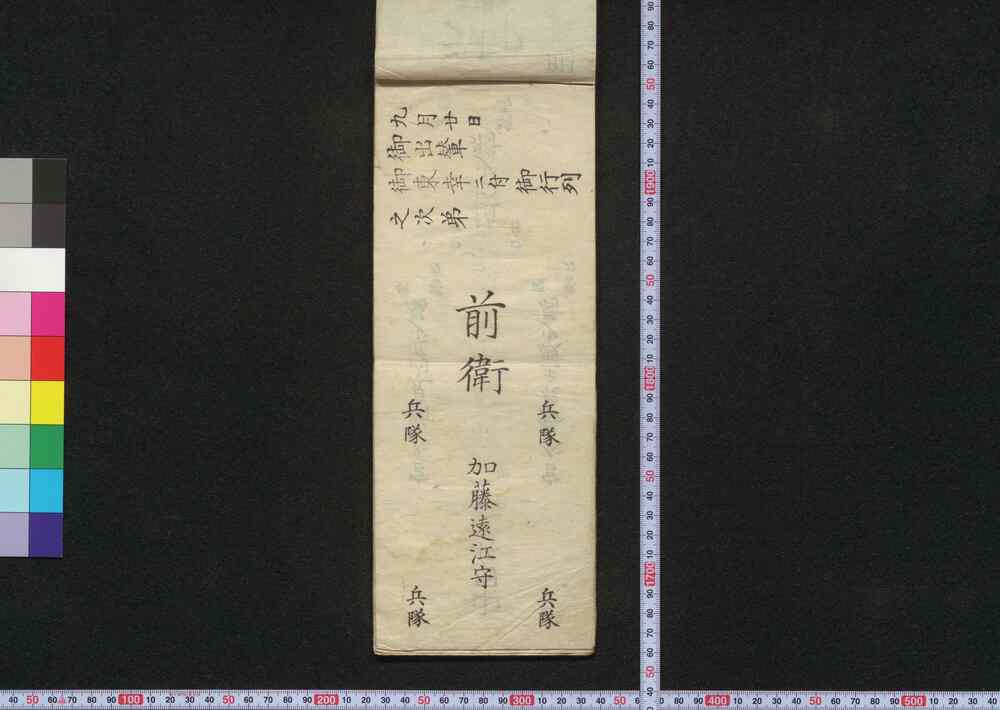 九月廿日
御出輦
御東幸ニ付 御行列
之次弟
前衛
兵隊
兵隊
加藤遠江守
兵隊
兵隊